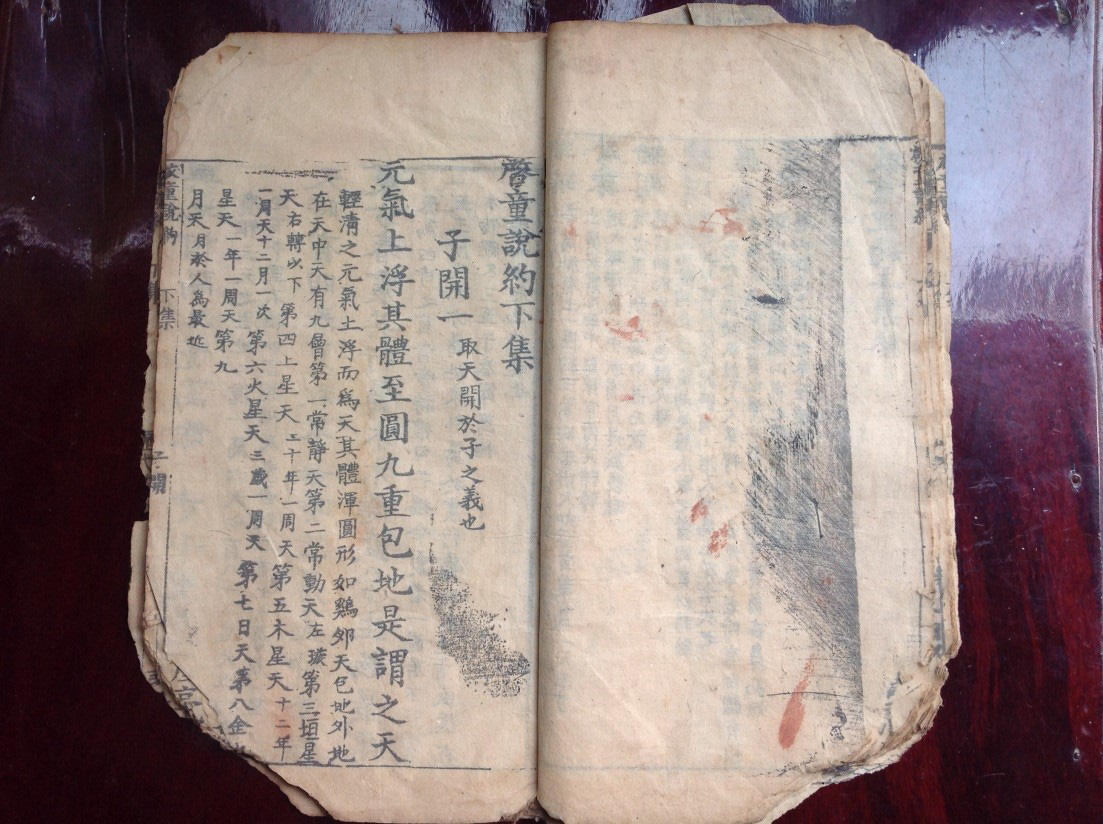 啓童說約下集
子開一 取天開於子之義也
元氣上浮其體至圓九重包地是謂之天
輕清之元氣上浮而爲天其體渾圓形如鷄卵天包地外地
在天中天有九層第一常靜天第二常動天左璇第三垣星
天右轉以下第四土星天二十年一周天第五木星天十二年
一周天十二月一次第六火星天三歲一周天第七日天第八金
星天一年一周天第九
月天月於人爲最近
童說約 下集 子開